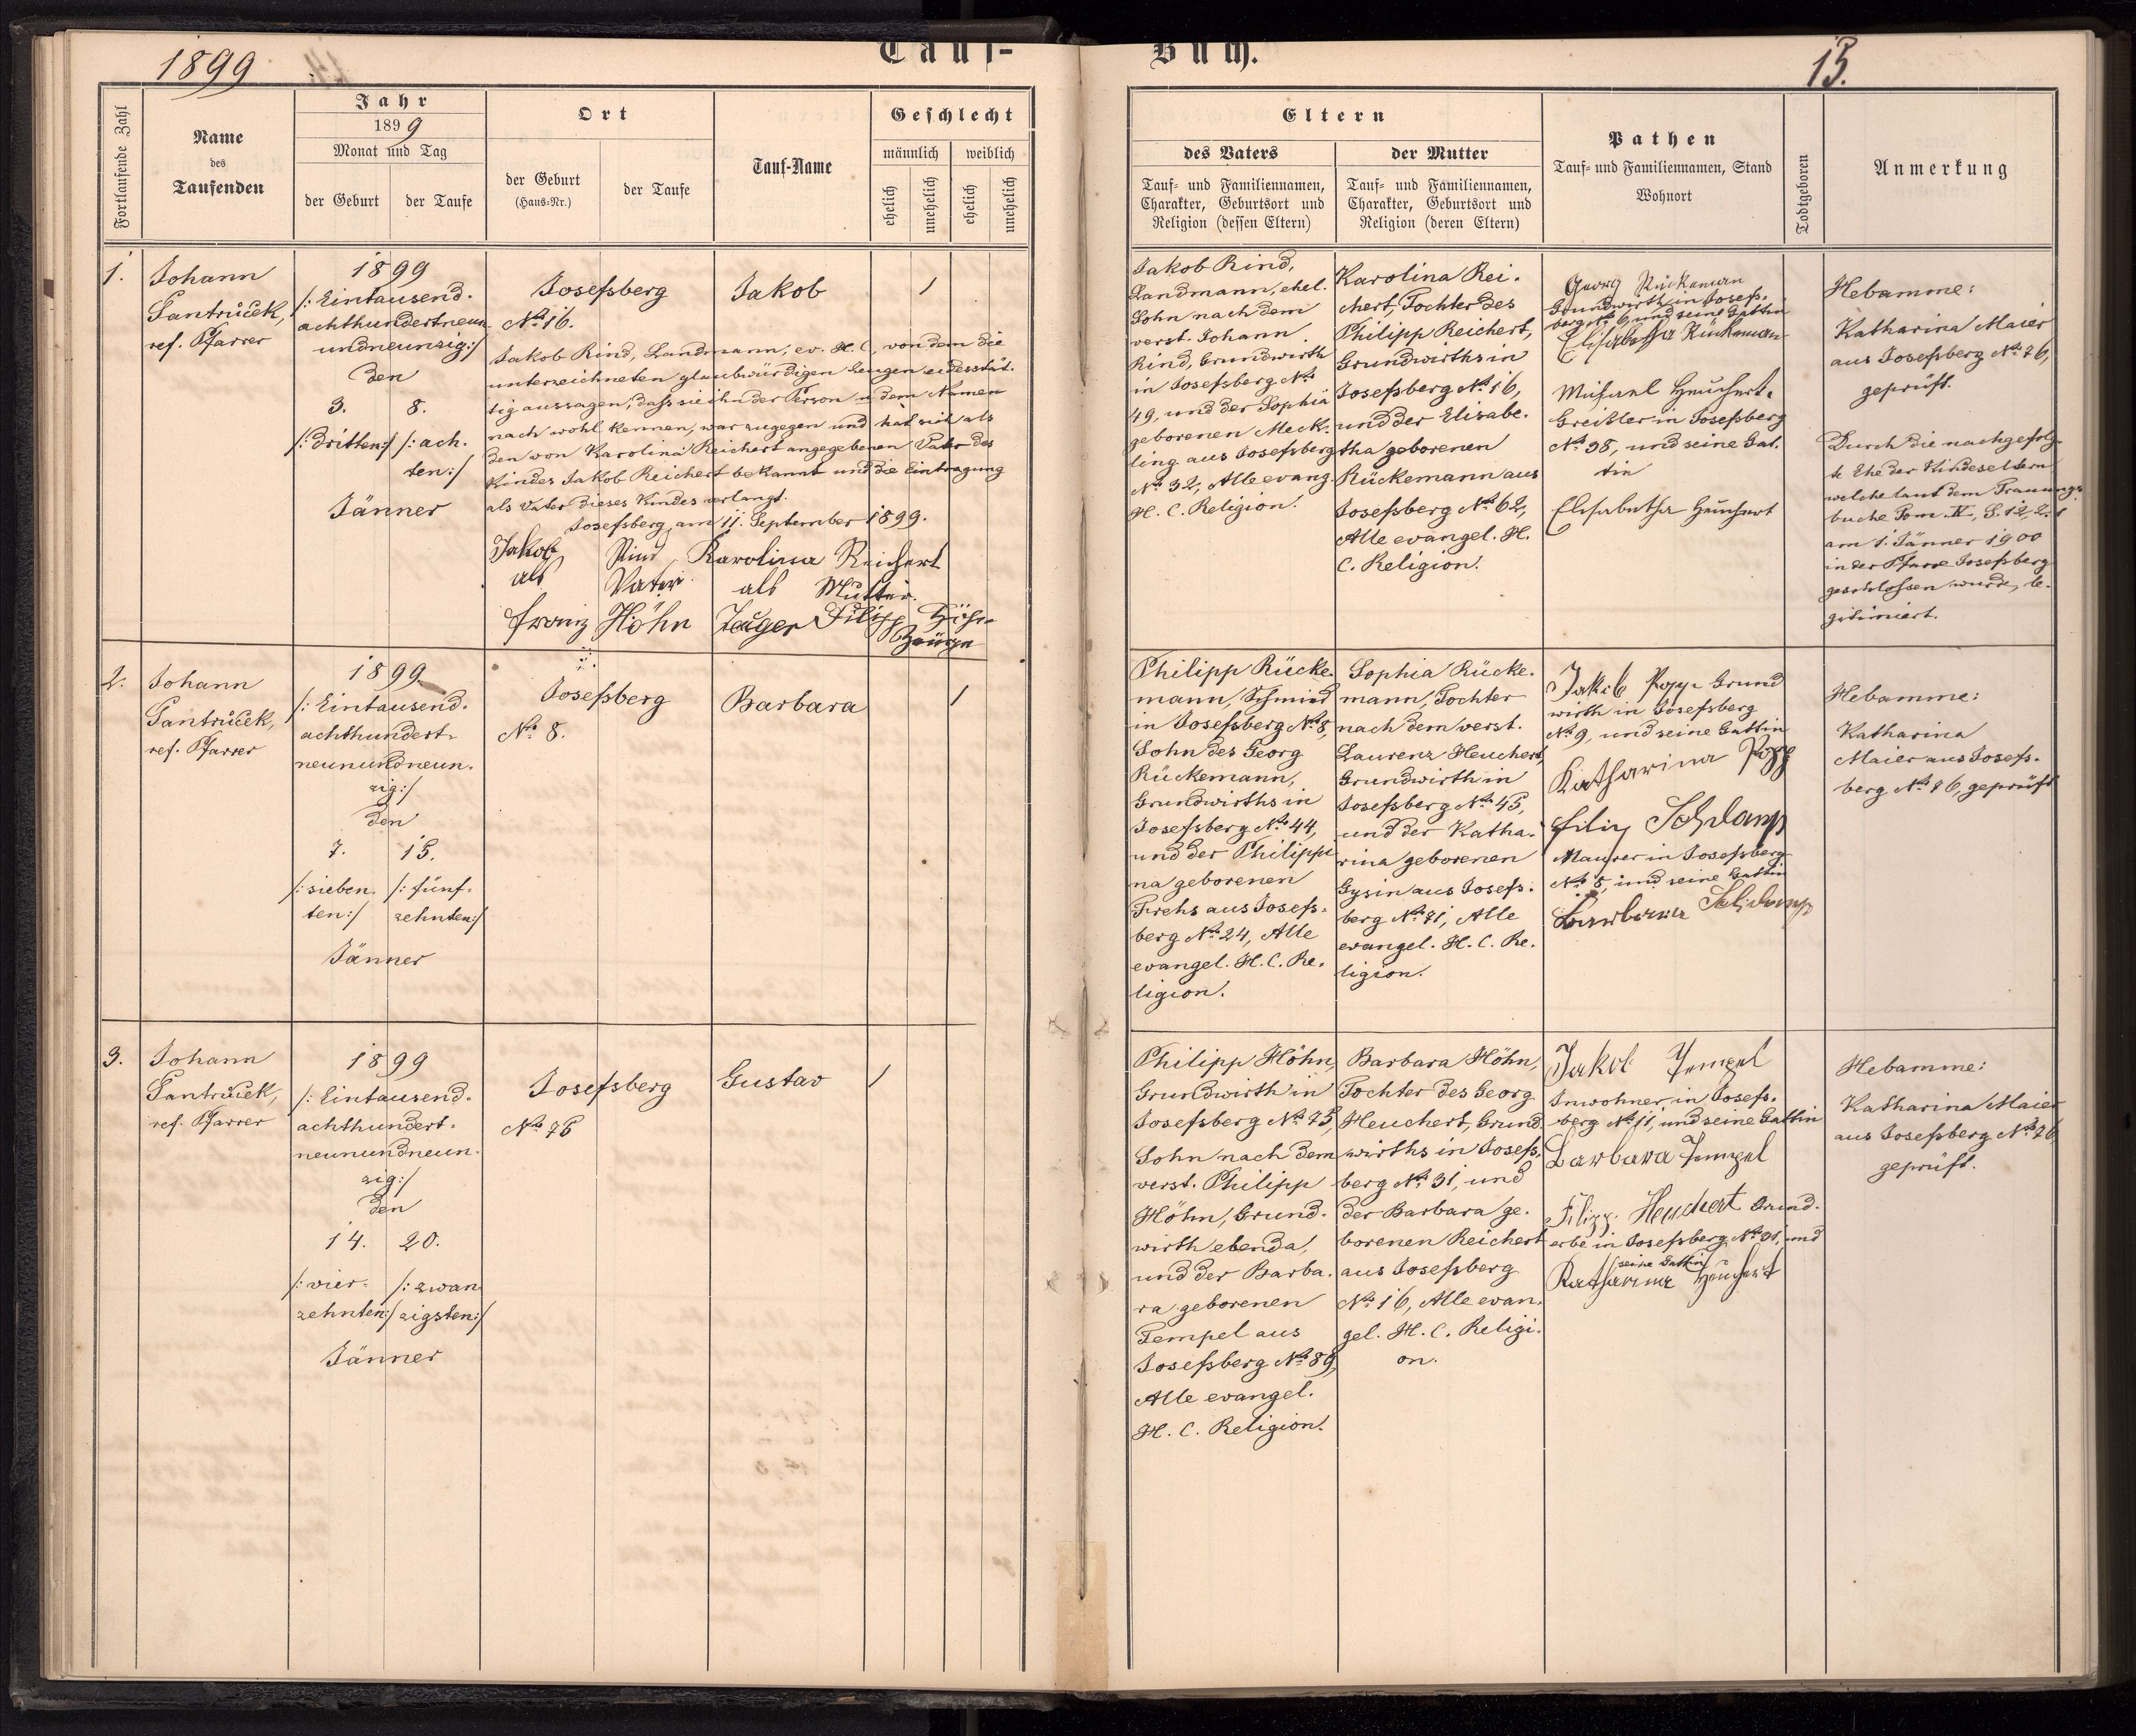 1899
Tauf-
Buch.
15.
Fortlaufende Zahl
Name
des
Taufenden
Jahr
1899
Monat und Tag
der Geburt
der Taufe
Ort
der Geburt
(Haus-Nr.)
der Taufe
Tauf-Name
Geschlecht
männlich
weiblich
ehelich
unehelich
ehelich
unehelich
Eltern
des Vaters
Tauf- und Familiennamen,
Charakter, Geburtsort und
Religion (dessen Eltern)
der Mutter
Tauf- und Familiennamen,
Charakter, Geburtsort und
Religion (deren Eltern)
Pathen
Tauf- und Familiennamen, Stand
Wohnort
Todtgeboren
Anmerkung
1.
Johann
Santrůček,
ref. Pfarrer
1899
/: Eintausend-
achthundertneun-
undneunzig:/
den
3.
8.
/: dritten:/
/: ach-
ten:/
Jänner
Josefsberg
No 16.
Jakob
/
Jakob Rind, Landmann, ev. H. C., von dem die
unterzeichneten glaubwürdigen Zeugen eidesstät-
tig aussagen, dass sie ihn der Person u dem Namen
nach wohl kennen, war zugegen und hat sich als
den von Karolina Reichert angegebenen Vater des
Kindes Jakob Reichert bekannt und die Eintragung
als Vater dieses Kindes verlangt.
Josefsberg, am 11. September 1899.
Jakob Rind Karolina Reichert
als Vater als Mutter.
Franz Höhn Zeuge Filipp Höhn
Zeuge
Jakob Rind,
Landmann, ehel.
Sohn nach dem
verst. Johann
Rind, Grundwirth
in Josefsberg No
49, und der Sophia
geborenen Meck-
ling aus Josefsberg
No 32, Alle evang.
H. C. Religion.
Karolina Rei-
chert, Tochter des
Philipp Reichert,
Grundwirths in
Josefsberg No 16,
und der Elisabe-
tha geborenen
Rückemann aus
Josefsberg No 62,
Alle evangel. H.
C. Religion.
Georg Rückeman
Grundwirth in Josefs-
berg und seine Gattin
Elisabetha Rückeman
Michael Heuchert.
Greisler in Josefsberg
No 38, und seine Gat-
tin
Elisabetha Heuchert
Hebamme:
Katharina Maier
aus Josefsberg No 76,
geprüft.
Durch die nachgefolg-
te Ehe der Kindeseltern
welche laut dem Trauungs-
buche Tom. II, S. 12, Z. 1
am 1. Jänner 1900
in der Pfarre Josefsberg
geschlossen wurde, le-
gitimiert.
2.
Johann
Santrůček,
ref. Pfarrer
1899
/: Eintausend-
achthundert-
neunundneun-
zig:/
den
7.
15.
/: sieben-
ten:/
/: fünf-
zehnten:/
Jänner
Josefsberg
No 8.
Barbara
/
Philipp Rücke-
mann, Schmied
in Josefsberg No 8,
Sohn des Georg
Rückemann,
Grundwirths in
Josefsberg No 44,
und der Philippi-
na geborenen
Fuchs aus Josefs-
berg No 24, Alle
evangel. H. C. Re-
ligion.
Sophia Rücke-
mann, Tochter
nach dem verst.
Laurenz Heuchert,
Grundwirth in
Josefsberg No 45,
und der Katha-
rina geborenen
Gysin aus Josefs-
berg No 71, Alle
evangel. H. C. Re-
ligion.
Jakob Popp Grund
wirth in Josefsberg
No 9, und seine Gattin
Katharina Popp
Filip Schlamp
Maurer in Josefsberg
No 5, und seine Gattin
Barbara Schlamp
Hebamme:
Katharina
Maier aus Josefs-
berg No 76, geprüft
3.
Johann
Santrůček,
ref. Pfarrer
1899
/: Eintausend-
achthundert-
neunundneun-
zig:/
den
14.
20.
/: vier-
zehnten:/
/: zwan
zigsten:/
Jänner
Josefsberg
No 75
Gustav
/
Philipp Höhn,
Grundwirth in
Josefsberg No 75,
Sohn nach dem
verst. Philipp
Höhn, Grund-
wirth ebenda,
und der Barba-
ra geborenen
Tempel aus
Josefsberg No 89,
Alle evangel.
H. C. Religion.
Barbara Höhn,
Tochter des Georg
Heuchert, Grund-
wirths in Josefs-
berg No 31, und
der Barbara ge-
borenen Reichert
aus Josefsberg
No 16, Alle evan-
gel. H. C. Religi-
on.
Jakob Tempel
Inwohner in Josefs-
berg No 11, und seine Gattin
Barbara Tempel
Filipp Heuchert Grund-
erbe in Josefsberg No 31, und
(seine Gattin)
Katharina Heuchert
Hebamme:
Katharina Maier
aus Josefsberg No 76,
geprüft.